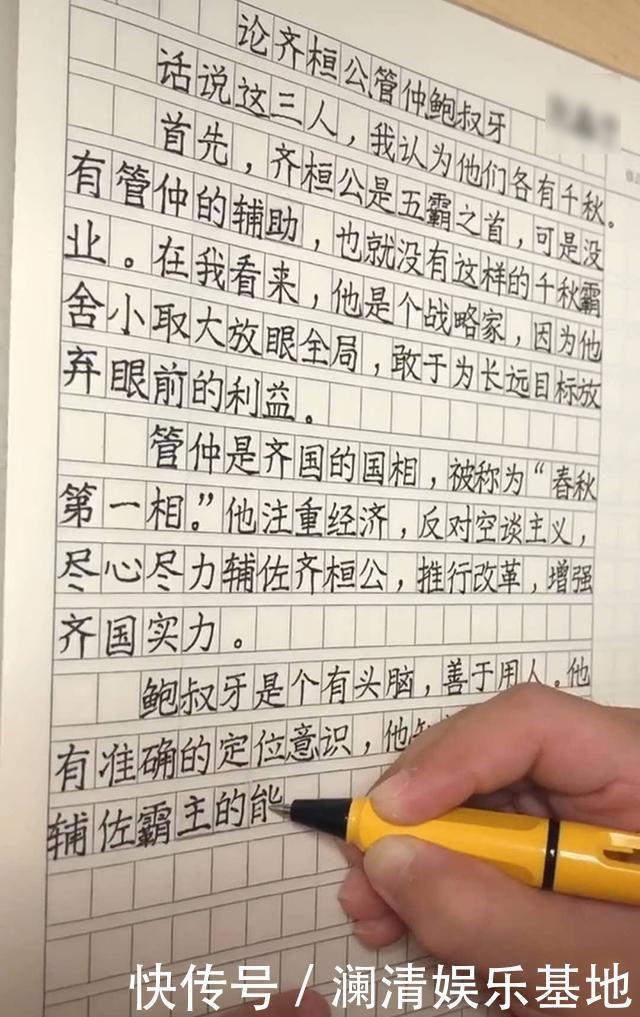 论齐桓公管仲鲍叔牙
话说这三人，我认为他们各有千秋。
首先，齐桓公是五霸之首，可是没
有管仲的辅助，也就没有这样的千秋霸
业。在我看来，他是个战略家，因为他
舍小取大放眼全局，敢于为长远目标放
弃眼前的利益。
管仲是齐国的国相，被称为“春秋
第一相。”他注重经济，反对空谈主义，
尽心尽力辅佐齐桓公，推行改革，增强
齐国实力。
鲍叔牙是个有头脑，善于用人。他
有准确的定位意识，他
辅佐霸主的能
快传号 / 澜清娱乐基地